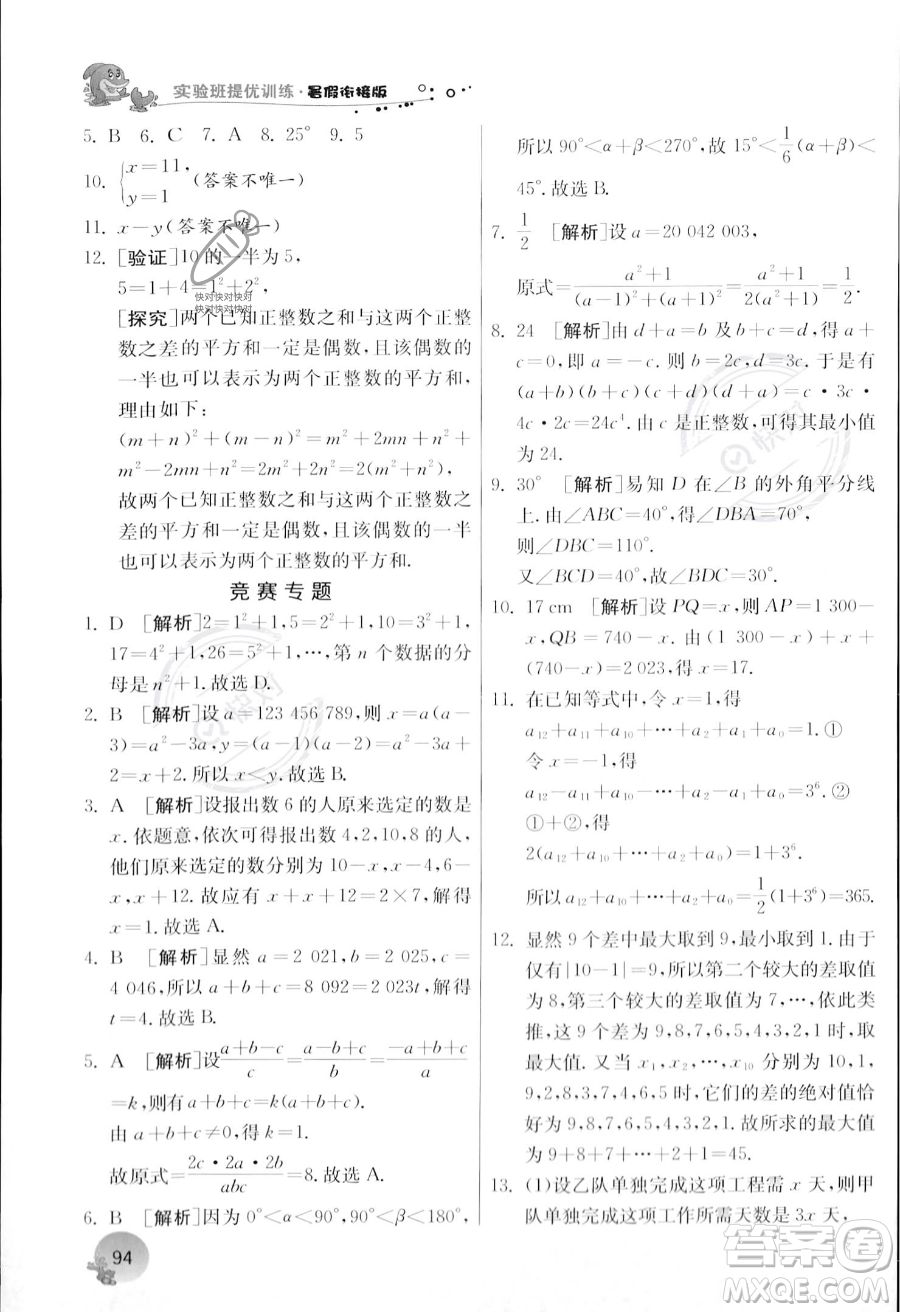 实验班提优训练·暑假衔接版
5. B 6. C 7. A 8. 25° 9. 5
10. {x=11, y=1 (答案不唯一)
11. x−y(答案不唯一)
12. [验证]10的一半为5,
5=1+4=1²+2²,
[探究]两个已知正整数之和与这两个正整
数之差的平方和一定是偶数,且该偶数的
一半也可以表示为两个正整数的平方和.
理由如下:
(m+n)²+(m−n)²=m²+2mn+n²+
m²−2mn+n²=2m²+2n²=2(m²+n²),
故两个已知正整数之和与这两个正整数之
差的平方和一定是偶数,且该偶数的一半
也可以表示为两个正整数的平方和.
竞赛专题
1. D [解析]2=1²+1,5=2²+1,10=3²+1,
17=4²+1,26=5²+1,…,第n个数据的分
母是n²+1.故选D.
2. B [解析]设a=123 456 789,则x=a(a−
3)=a²−3a,y=(a−1)(a−2)=a²−3a+2
=x+2.所以x<y.故选B.
3. A [解析]设报出数6的人原来选定的数是
x.依题意,依次可得报出数4,2,10,8的人,
他们原来选定的数分别为10−x,x−4,6−
x,x+12.故应有x+x+12=2×7,解得
x=1.故选A.
4. B [解析]显然a=2 021,b=2 025,c=
4 046,所以a+b+c=8 092=2 023t,解得
t=4.故选B.
5. A [解析]设(a+b−c)/c=(a−b+c)/b=(−a+b+c)/a
=k,则有a+b+c=k(a+b+c).
由a+b+c≠0,得k=1.
故原式=(2c·2a·2b)/abc=8.故选A.
6. B [解析]因为0°<α<90°,90°<β<180°,
所以90°<α+β<270°,故15°<1/6(α+β)<
45°.故选B.
7. 1/2 [解析]设a=20 042 003,
原式=(a²+1)/((a−1)²+(a+1)²)=(a²+1)/(2(a²+1))=1/2.
8. 24 [解析]由d+a=b及b+c=d,得a+
c=0,即a=−c.则b=2c,d=3c.于是有
(a+b)(b+c)(c+d)(d+a)=c·3c·
4c·2c=24c⁴.由c是正整数,可得其最小值
为24.
9. 30° [解析]易知D在∠B的外角平分线
上.由∠ABC=40°,得∠DBA=70°,
则∠DBC=110°.
又∠BCD=40°,故∠BDC=30°.
10. 17 cm [解析]设PQ=x,则AP=1 300−
x,QB=740−x.由(1 300−x)+x+
(740−x)=2 023,得x=17.
11. 在已知等式中,令x=1,得
a₁₂+a₁₁+a₁₀+…+a₂+a₁+a₀=1.①
令x=−1,得
a₁₂−a₁₁+a₁₀−…+a₂−a₁+a₀=3⁶.②
①+②,得
2(a₁₂+a₁₀+…+a₂+a₀)=1+3⁶.
所以a₁₂+a₁₀+…+a₂+a₀=1/2(1+3⁶)=365.
12. 显然9个差中最大取到9,最小取到1.由于
仅有|10−1|=9,所以第二个较大的差取值
为8,第三个较大的差取值为7,…,依此类
推,这9个差为9,8,7,6,5,4,3,2,1时取
最大值.又当x₁,x₂,…,x₁₀分别为10,1,
9,2,8,3,7,4,6,5时,它们的差的绝对值恰
好为9,8,7,6,5,4,3,2,1.故所求的最大值
为9+8+7+…+2+1=45.
13. (1)设乙队单独完成这项工程需x天,则甲
队单独完成这项工作所需天数是3x天,
94
快对快对快对
快对快对快对
快对
答案圈
MXQE.COM